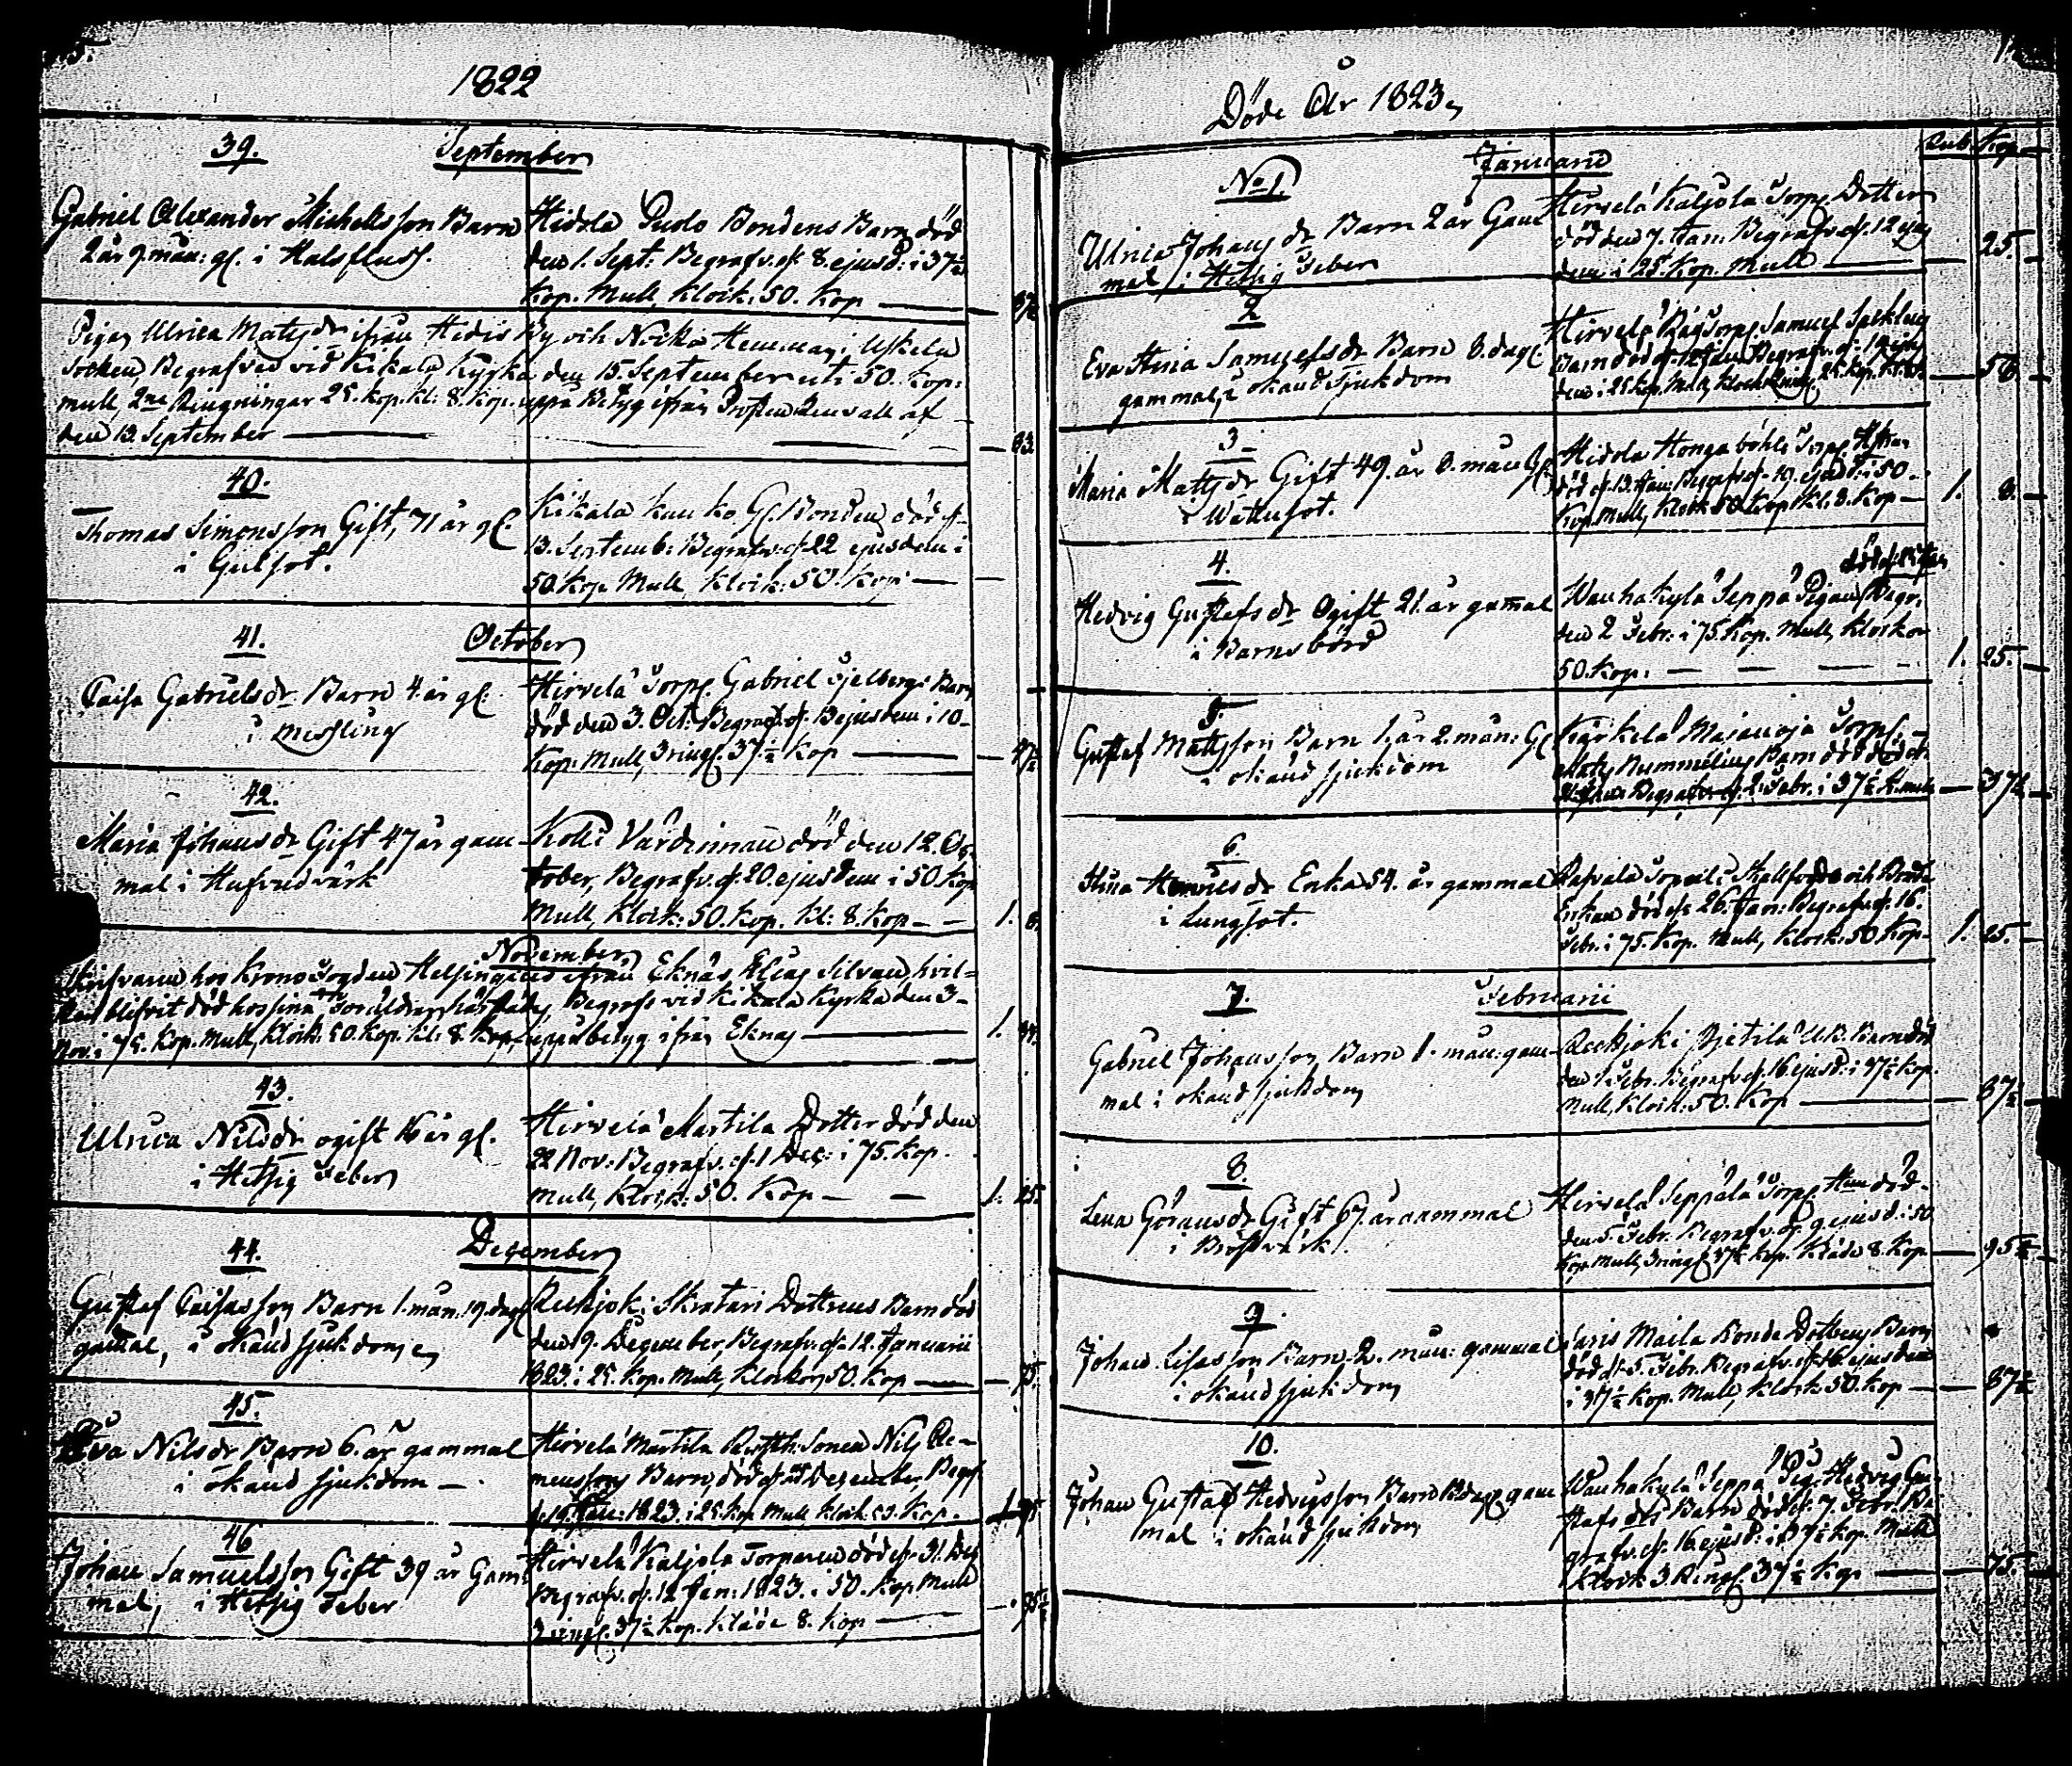 1822
39.
September
Gabriel Alexander Michelsson Barn
2 år 9 mån: gl. i Halsfluss.
Hidola Puolo Bondens Barn död
den 1. Sept: Begrafv. d. 8. ejusd: i 37½
Kop. Mull, Klock: 50. Kop
87½
Pigan Ulrica Matsdr ifrån Hedis By och Hemman i Uskela
Socken, Begrafven vid Kikala Kyrka den 15. September uti 50. Kop:
mull, 2ne Ringningar 25. Kop. kl: 8. Kop. uppå Betyg ifrån Prosten af
den 13. September
83.
40.
Thomas Simonsson Gift, 71 år gl.
i Gulsot.
Kikala Gl. Bonden död d.
13. Septemb: Begrafv. d. 22 ejusdem i
50 Kop Mull Klock: 50. Kop:
41.
October
Caisa Gabrielsdr Barn 4. år gl.
i Messling
Hirvelä Torp. Gabriel Sjelbergs Barn
död den 3. Oct: Begraf. d. 13 ejusdem i 10
Kop: Mull, 3 ringn. 37½ Kop
47½
42.
Maria Johansdr Gift 47 år gam-
mal i Hufvudvärk
Kolli Värdinnan död den 12. Oc-
tober, Begrafv. d. 20. ejusdem i 50 Kop
Mull, Klock: 50. Kop. kl: 8. Kop
1. 8.
November
Skrifvaren hos Krono Fogden Helsingius ifrån Eknäs Elias Silvan, hvil-
ken blifvit död hos sina Föräldrar Begrafs vid Kikala Kyrka den 3
Nov: i 75. Kop. Mull, Klock: 50. Kop. kl: 8. Kop, uppå betyg ifrån Eknäs
1. 33.
43.
Ulrica Nilsdr ogift 16 år gl.
i Hetsig Feber
Hirvelä Martila Dotter död den
22 Nov: Begrafv. d. 1 Dec: i 75. Kop.
Mull, Klock: 50. Kop
1. 25.
44.
December
Gustaf Caisasson Barn 1. mån. 19. dag.
gammal, i okänd sjukdom
Rekijoki Skratari Dottrens Barn död
den 9. December, Begrafv. d. 12. Januarii
1823. i 25. Kop. Mull, Klockor 50. Kop
75.
45.
Eva Nilsdr Barn 6. år gammal
i okänd sjukdom
Hirvelä Martila Nils Cle-
mensons Barn, död d. December, Begr.
1823 i 25. Kop Mull, Klock: 50. Kop.
75
46
Johan Samuelsson Gift 39 år Gam-
mal, i Hetsig Feber
Hirvelä Kaljola Torparen död d. 31. Dec
Begrafv. d. 12 Jan: 1823. i 50. Kop Mull
3 ringn. 37½ Kop. Kläde 8. Kop
95½
Döde År 1823,
Rub. Kop
Januarii
No 1.
Ulrica Johansdr Barn 2 år Gam
mal i Hetsig Feber
Hirvelä Kaljola Torp. Dotter
död den 7. Jan: Begrafv. d. 12 ejus
dem i 25. Kop. Mull
25.
2
Eva Stina Samuelsdr Barn 8. dag.
gammal, i okänd sjukdom
Hirvelä Torp. Samuel
Barn död d. Jan: Begrafv. d. 19 ejus
dem i 25 Kop. Mull, Klock
3
Maria Matsdr Gift 49. år 8. mån Gl.
i Wattusot.
Hidola Hongaböhle Torp.
död d. 13. Jan: Begrafv. d. 19. ejusd: i 50
Kop. Mull, Klock 50. Kop Kl: 8. Kop
1. 8.
4.
Hedvig Gustafsdr Ogift 21. år gammal
i Barnsbörd
Wanhakylä Seppä Pigan Begr.
den 2 Febr: i 75. Kop. Mull, Klockor
50. Kop:
1. 25.
5.
Gustaf Matsson Barn 1. år 2. mån: Gl
i okänd sjukdom
Kärkelä Majanoja Torp.
Mats Nummelins Barn död
Begrafv. d. 2. Febr. i 37½ K. mull
37½
6
Stina Hennesdr Enka 54. år gammal
i Lungsot.
Enkan död d. 26. Jan: Begrafv. d. 16.
Febr. i 75. Kop. Mull, Klock: 50 Kop
1. 25.
7.
Februarii
Gabriel Johansson Barn 1. mån: gam-
mal i okänd sjukdom
Reckijoki Pietilä Barn död
den 1 Febr. Begrafv. d. 16 ejusd: i 37½ Kop.
Mull, Klock: 50. Kop
87½
8.
Lena Göransdr Gift 67. år gammal
i Bröstvärk
Hirvelä Seppälä Torp. död
den 5. Febr. Begrafv. d. 9. ejusd: i 50
Kop. Mull, 3 ringn. 37½ Kop. Kläde 8. Kop
95½
9.
Johan Lisasson Barn 2. mån: gammal
i okänd sjukdom
Saris Maila Bonde Dottrens Barn
död d. 5. Febr. Begrafv. d. 16 ejusdem
i 37½ Kop. Mull, Klock 50. Kop
87½
10.
Johan Gustaf Hedvigsson Barn gam
mal i okänd sjukdom
Wanhakylä Seppä Pig. Hedvig Gu-
stafsdrs Barn död d. 7. Febr. Be
grafv. d. 16 ejusd: i 37½ Kop. Mull
Klock 3. Ringn. 37½ Kop
75.